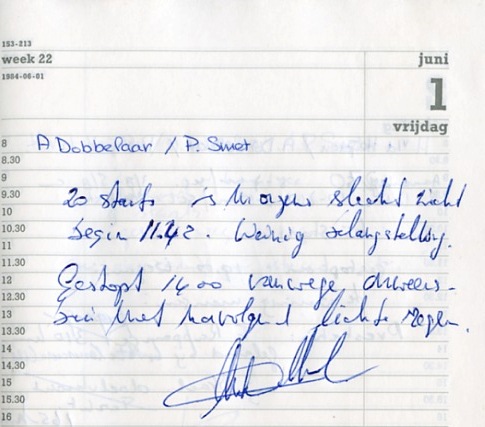 153-213
week 22
juni
1984-06-01
1
vrijdag
8
A Dobbelaar / P. Smet
8.30
9
9.30
20 starts 's morgens slecht zicht
10
10.30
begin 11.42. Weinig belangstelling.
11
11.30
12
Gestopt 1400 vanwege onweers-
12.30
13
bui met navolgend lichte regen.
13.30
14
14.30
15
15.30
16